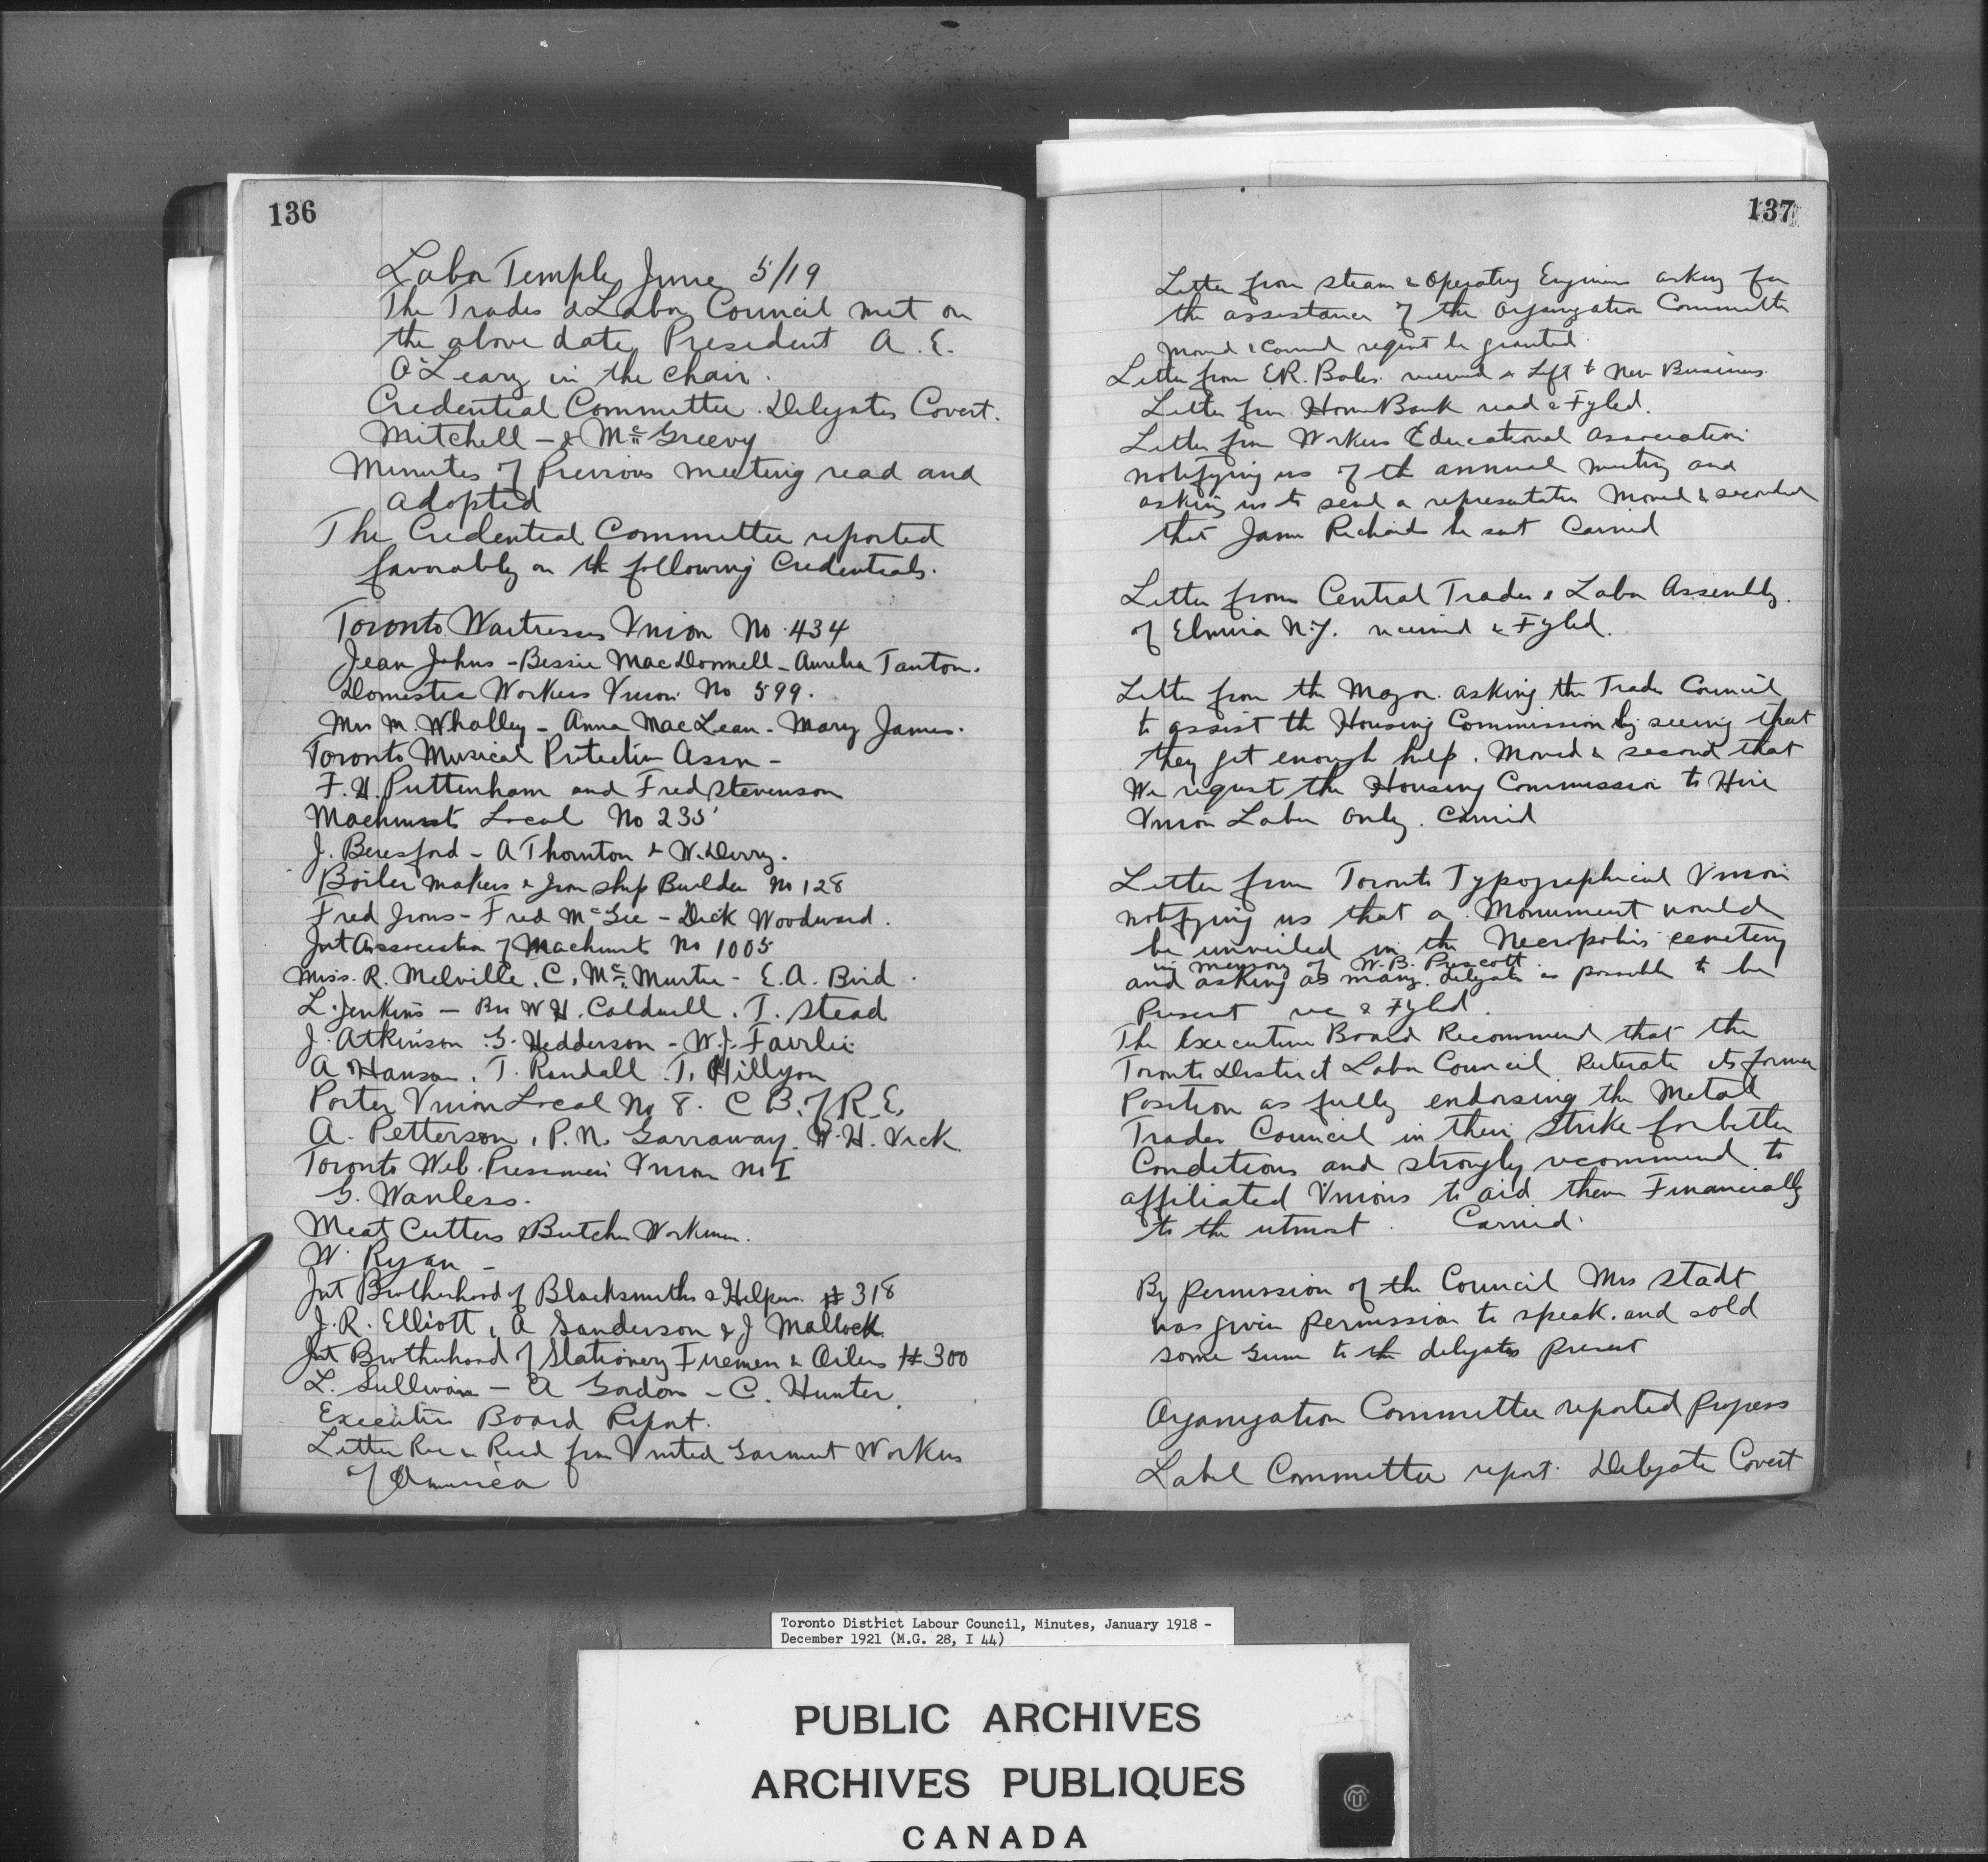 136
Labor Temple June 5/19
The Trades & Labor Council met on
the above date President A. E.
O'Leary in the chair.
Credential Committee. Delegates Covert.
Mitchell - & McGreevy
Minutes of Previous meeting read and
adopted
The Credential Committee reported
favorably on the following Credentials.
Toronto Waitresses Union No. 434
Jean Johns - Bessie MacDonnell - Aurelia Tanton.
Domestic Workers Union No 599.
Mrs M. Whalley - Anna MacLean - Mary James.
Toronto Musical Protective Assn -
F. H. Puttenham and Fred Stevenson
Machinists Local No 235
J. Beresford - A Thornton & W. Derry.
Boiler makers & Iron ship Builder No 128
Fred Irons - Fred McGee - Dick Woodward.
Int Association of Machinist No 1005
Miss. R. Melville. C. McMurtie - E.A. Bird.
L. Jenkins - Bro W H. Caldwell. T. Stead
J. Atkinson. G. Hedderson - W.J. Fairlie
A Hanson. T. Randall. T. Hillyon
Porter Union Local No 8. C B. of R.E.
A. Petterson, P.N. Garraway. W.H. Vick
Toronto Web. Pressmen Union No I
G. Wanless.
Meat Cutters & Butcher Workmen.
W. Ryan -
Int Brotherhood of Blacksmiths & Helpers # 318
J.R. Elliott, A Sanderson & J Mallock
Int Brotherhood of Stationery Firemen & Oilers # 300
L. Sullivan - A Gordon - C. Hunter.
Executive Board Report.
Letter Rec & Read from United Garment Workers
of America
137
Letter from Steam & Operating Engineers asking for
the assistance of the Organization Committee
Moved & Carried request be granted.
Letter from E.R. Bales. received & Left to New Business.
Letter from Home Bank read & Fyled.
Letter from Workers Educational Association
notifying us of the annual meeting and
asking us to send a representative Moved & seconded
that James Richards be sent Carried
Letter from Central Trades & Labor Assembly.
of Elmira N.Y. received & Fyled.
Letter from the Mayor. asking the Trades Council
to assist the Housing Commission by seeing that
they get enough help. Moved & second that
We request the Housing Commission to Hire
Union Labor only. Carried
Letter from Toronto Typographical Union
notifying us that a Monument would
be unveiled in the Necropolis cemetery
in memory of W.B. Prescott.
and asking as many delegates as possible to be
Present rec & Fyled.
The Executive Board Recommend that the
Toronto District Labor Council Reiterate its former
Position as fully endorsing the Metal
Trades Council in their Strike for better
Conditions and strongly recommend to
affiliated Unions to aid them Financially
to the utmost. Carried.
By Permission of the Council Mrs Stadt
was given Permission to speak. and sold
some Gum to the delegates Present
Organization Committee reported Progress
Label Committee report. Delegate Covert
Toronto District Labour Council, Minutes, January 1918 -
December 1921 (M.G. 28, I 44)
PUBLIC ARCHIVES
ARCHIVES PUBLIQUES
CANADA